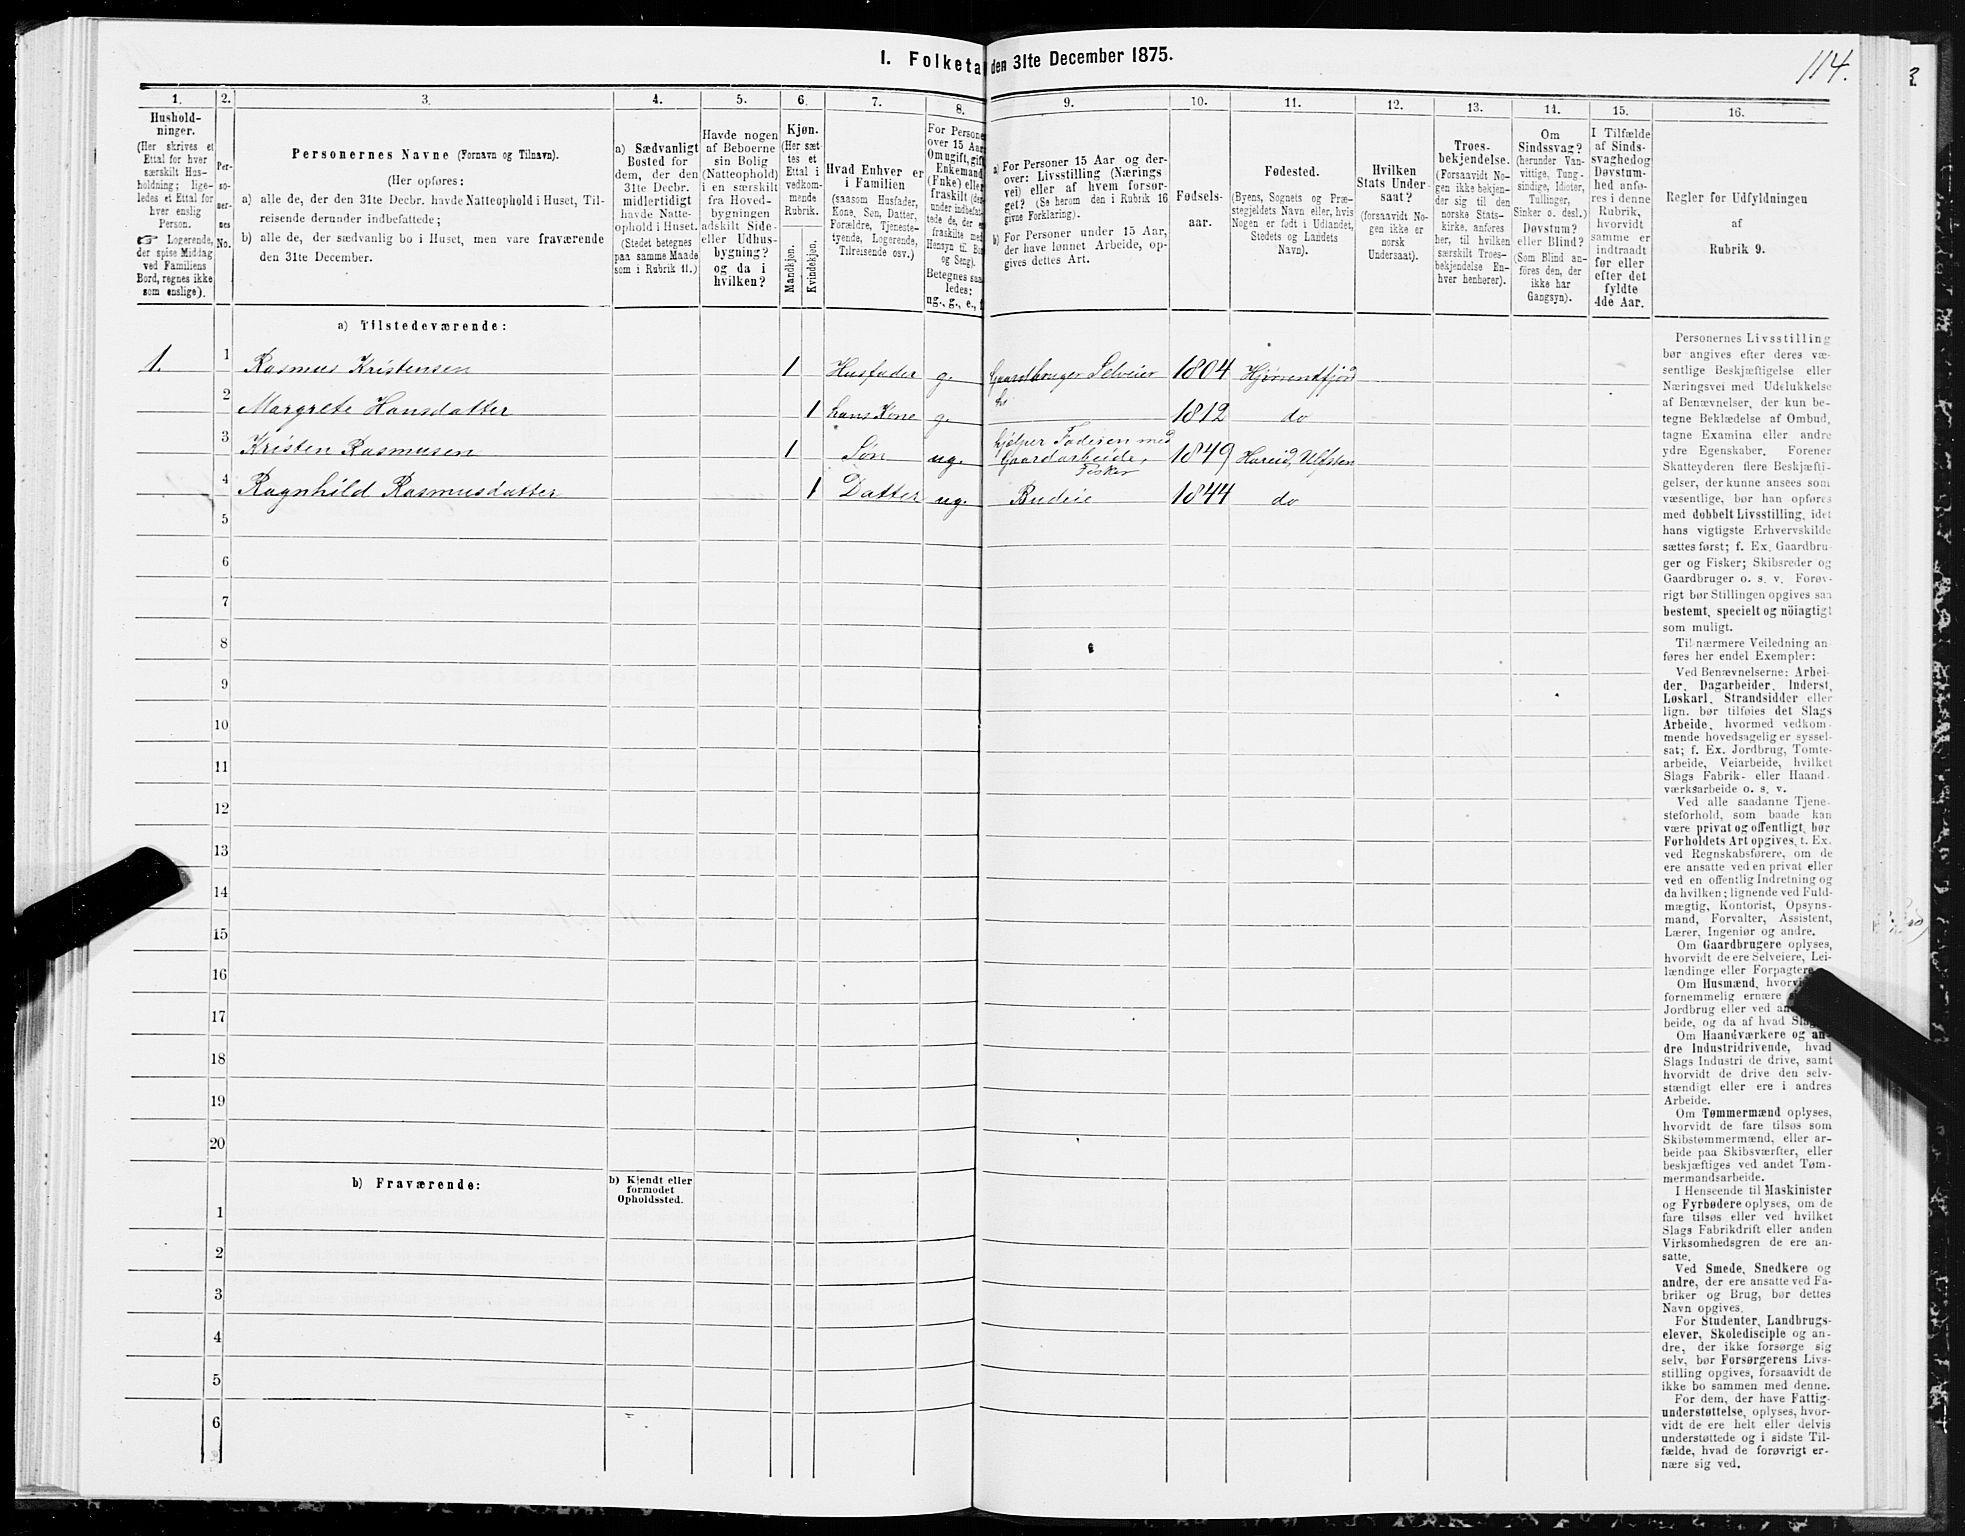 1. Folketa den 31te December 1875.
114.
1.
2.
3.
4.
5.
6.
7.
8.
9.
10.
11.
12.
13.
14.
15.
16.
Hushold-
ninger.
(Her skrives et
Ettal for hver
særskilt Hus-
holdning; lige-
ledes et Ettal for
hver enslig
Person.
Logerende,
der spise Middag
ved Familiens
Bord, regnes ikke
som enslige).
Per-
so-
ner-
nes
No.
Personernes Navne (Fornavn og Tilnavn).
(Her opføres:
a) alle de, der den 31te Decbr. havde Natteophold i Huset, Til-
reisende derunder indbefattede;
b) alle de, der sædvanlig bo i Huset, men vare fraværende
den 31te December.
a) Sædvanligt
Bosted for
dem, der den
31te Decbr.
midlertidigt
havde Natte-
ophold i Huset.
(Stedet betegnes
paa samme Maade
som i Rubrik 11.)
Havde nogen
af Beboerne
sin Bolig
(Natteophold)
i en særskilt
fra Hoved-
bygningen
adskilt Side-
eller Udhus-
bygning?
og da i
hvilken?
Kjøn.
(Her sæt-
tes et
Ettal i
vedkom-
mende
Rubrik.
Mandkjøn.
Kvindekjøn.
Hvad Enhver er
i Familien
(saasom Husfader,
Kone, Søn, Datter,
Forældre, Tjeneste-
tyende, Logerende,
Tilreisende osv.)
For Persone
over 15 Aar
Om ugift, gift
Enkemand
(Enke) eller
fraskilt (der-
under indbefat-
tede de, der er
fraskilte med
Hensyn til Bo
og Seng).
Betegnes saa
ledes:
ug., g., e., f
a) For Personer 15 Aar og der-
over: Livsstilling (Nærings
vei) eller af hvem forsør-
get? (Se herom den i Rubrik 16
givne Forklaring).
b) For Personer under 15 Aar,
der have lønnet Arbeide, op-
gives dettes Art.
Fødsels-
aar.
Fødested.
(Byens, Sognets og Præ-
stegjeldets Navn eller, hvis
Nogen er født i Udlandet,
Stedets og Landets
Navn).
Hvilken
Stats Under-
saat?
(forsaavidt No-
gen ikke er
norsk
Undersaat).
Troes-
bekjendelse.
(Forsaavidt No-
gen ikke bekjen-
der sig til den
norske Stats-
kirke, anføres
her, til hvilken
særskilt Troes-
bekjendelse En-
hver henhører).
Om
Sindssvag?
(herunder Van-
vittige, Tung-
sindige, Idioter,
Tullinger,
Sinker o. desl.)
Døvstum?
eller Blind?
(Som Blind an-
føres den, der
ikke har
Gangsyn).
I Tilfælde
af Sinds-
svaghed og
Døvstum-
hed anfø-
res i denne
Rubrik,
hvorvidt
samme er
indtraadt
før eller
efter det
fyldte
4de Aar.
Regler for Udfyldningen
af
Rubrik 9.
a) Tilstedeværende:
1. 1 Rasmus Kristensen 1 Husfader g. Gaardbruger Selveier 1804 Hjørrendfjord
2 Margrete Hansdatter 1 hans Kone g. 1812 do
3 Kristen Rasmusen 1 Søn ug. hjelper Faderen med Gaardarbeide, Fisker 1849 Hareid, Ulfsten
4 Ragnhild Rasmusdatter 1 Datter ug. Budeie 1844 do
5
6
7
8
9
10
11
12
13
14
15
16
17
18
19
20
b) Fraværende:
b) Kjendt eller
formodet
Opholdssted.
1
2
3
4
5
6
Personernes Livsstilling
bør angives efter deres væ-
sentlige Beskjæftigelse eller
Næringsvei med Udelukkelse
af Benævnelser, der kun be-
tegne Beklædelse af Ombud,
tagne Examina eller andre
ydre Egenskaber. Forener
Skatteyderen flere Beskjæfti-
gelser, der kunne ansees som
væsentlige, bør han opføres
med dobbelt Livsstilling, idet
hans vigtigste Erhvervskilde
sættes først; f. Ex. Gaardbru-
ger og Fisker; Skibsreder og
Gaardbruger o. s. v. Forøv-
rigt bør Stillingen opgives saa
bestemt, specielt og nöiagtigt
som muligt.
Til nærmere Veiledning an-
føres her endel Exempler:
Ved Benævnelserne: Arbei-
der, Dagarbeider, Inderst,
Løskarl, Strandsidder eller
lign. bør tilføies det Slags
Arbeide, hvormed vedkom-
mende hovedsagelig er syssel-
sat; f. Ex. Jordbrug, Tomte-
arbeide, Veiarbeide, hvilket
Slags Fabrik- eller Haand-
værksarbeide o. s. v.
Ved alle saadanne Tjene-
steforhold, som baade kan
være privat og offentligt, bør
Forholdets Art opgives, t. Ex.
ved Regnskabsførere, om de
ere ansatte ved en privat eller
ved en offentlig Indretning og
da hvilken; lignende ved Fuld-
mægtig, Kontorist, Opsyns-
mand, Forvalter, Assistent,
Lærer, Ingeniør og andre.
Om Gaardbrugere oplyses,
hvorvidt de ere Selveiere, Lei-
lændinge eller Forpagtere
Om Husmænd, hvorvi
fornemmelig ernære
Jordbrug eller ved an
beide, og da af hvad Slag
Om Haandværkere og an-
dre Industridrivende, hvad
Slags Industri de drive, samt
hvorvidt de drive den selv-
stændigt eller ere i andres
Arbeide.
Om Tømmermænd oplyses,
hvorvidt de fare tilsøs som
Skibstømmermænd, eller ar-
beide paa Skibsværfter, eller
beskjæftiges ved andet Tøm-
mermandsarbeide.
I Henseende til Maskinister
og Fyrbødere oplyses, om de
fare tilsøs eller ved hvilket
Slags Fabrikdrift eller anden
Virksomhedsgren de ere an-
satte.
Ved Smede, Snedkere og
andre, der ere ansatte ved Fa-
briker og Brug, bør dettes
Navn opgives.
For Studenter, Landbrugs-
elever, Skoledisciple og an-
dre, der ikke forsørge sig
selv, bør Forsørgerens Livs-
stilling opgives, forsaavidt de
ikke bo sammen med denne.
For dem, der have Fattig-
understøttelse, oplyses, hvor-
vidt de ere helt eller delvis
understøttede og i sidste Til-
fælde, hvad de forøvrigt er-
nære sig ved.